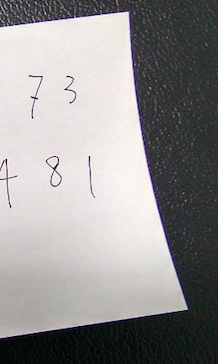 73
4 8 1